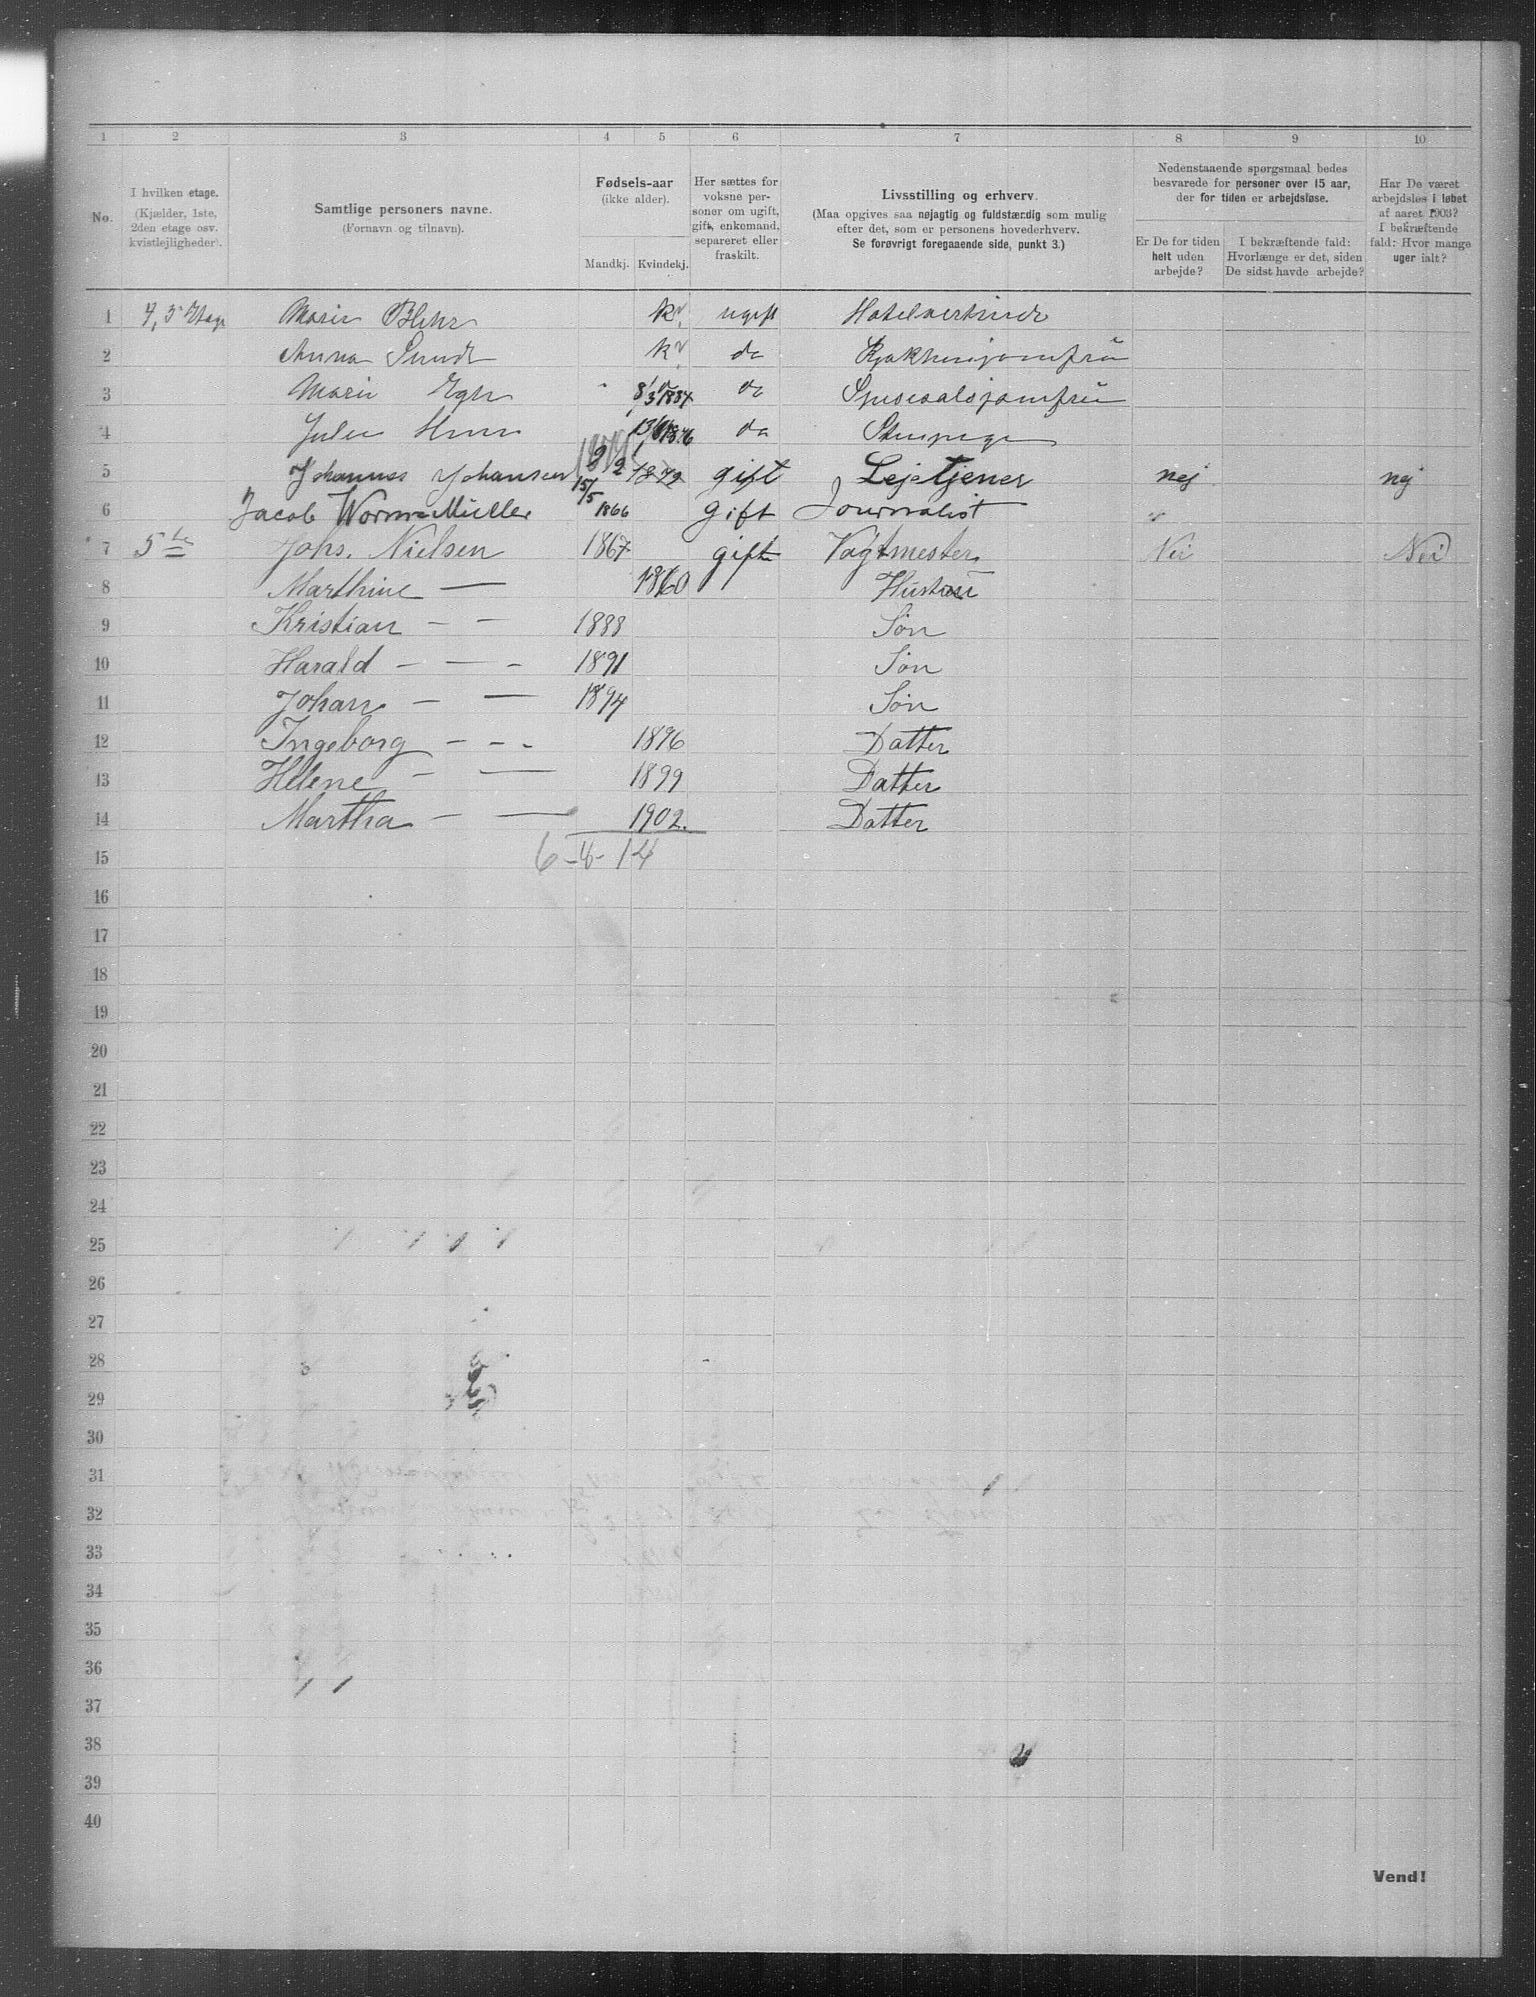 1 2 3 4 5 6 7 8 9 10
No.
I hvilken etage.
(Kjælder, 1ste,
2den etage osv.
kvistlejligheder).
Samtlige personers navne.
(Fornavn og tilnavn).
Fødsels-aar
(ikke alder).
Mandkj. Kvindekj.
Her sættes for
voksne per-
soner om ugift,
gift, enkemand,
separeret eller
fraskilt.
Livsstilling og erhverv.
(Maa opgives saa nøjagtig og fuldstændig som mulig
efter det, som er personens hovederhverv.
Se forøvrigt foregaaende side, punkt 3.)
Nedenstaaende spørgsmaal bedes
besvarede for personer over 15 aar,
der for tiden er arbejdsløse.
Er De for tiden
helt uden
arbejde?
I bekræftende fald:
Hvorlænge er det, siden
De sidst havde arbejde?
Har De været
arbejdsløs i løbet
af aaret 1903?
I bekræftende
fald: Hvor mange
uger ialt?
1 4, 5 Etage Marie ugift
2 Anna Sundt do
3 Marie 8/3 1884 do
4 do
5 Johannes Johansen 9/2 1872 gift Lejetjener nej nej
6 Jacob Worm-Müller 15/5 1866 gift Journalist
7 5te Johs. Nielsen 1867 gift Vagtmester Nei Nei
8 Marthine — 1860 Hustru
9 Kristian — — 1888 Søn
10 Harald — — - 1891 Søn
11 Johan — — 1894 Søn
12 Ingeborg - - - 1896 Datter
13 Helene - — 1899 Datter
14 Martha — — 1902. Datter
15 6-8-14
16
17
18
19
20
21
22
23
24
25
26
27
28
29
30
31
32
33
34
35
36
37
38
39
40
Vend!